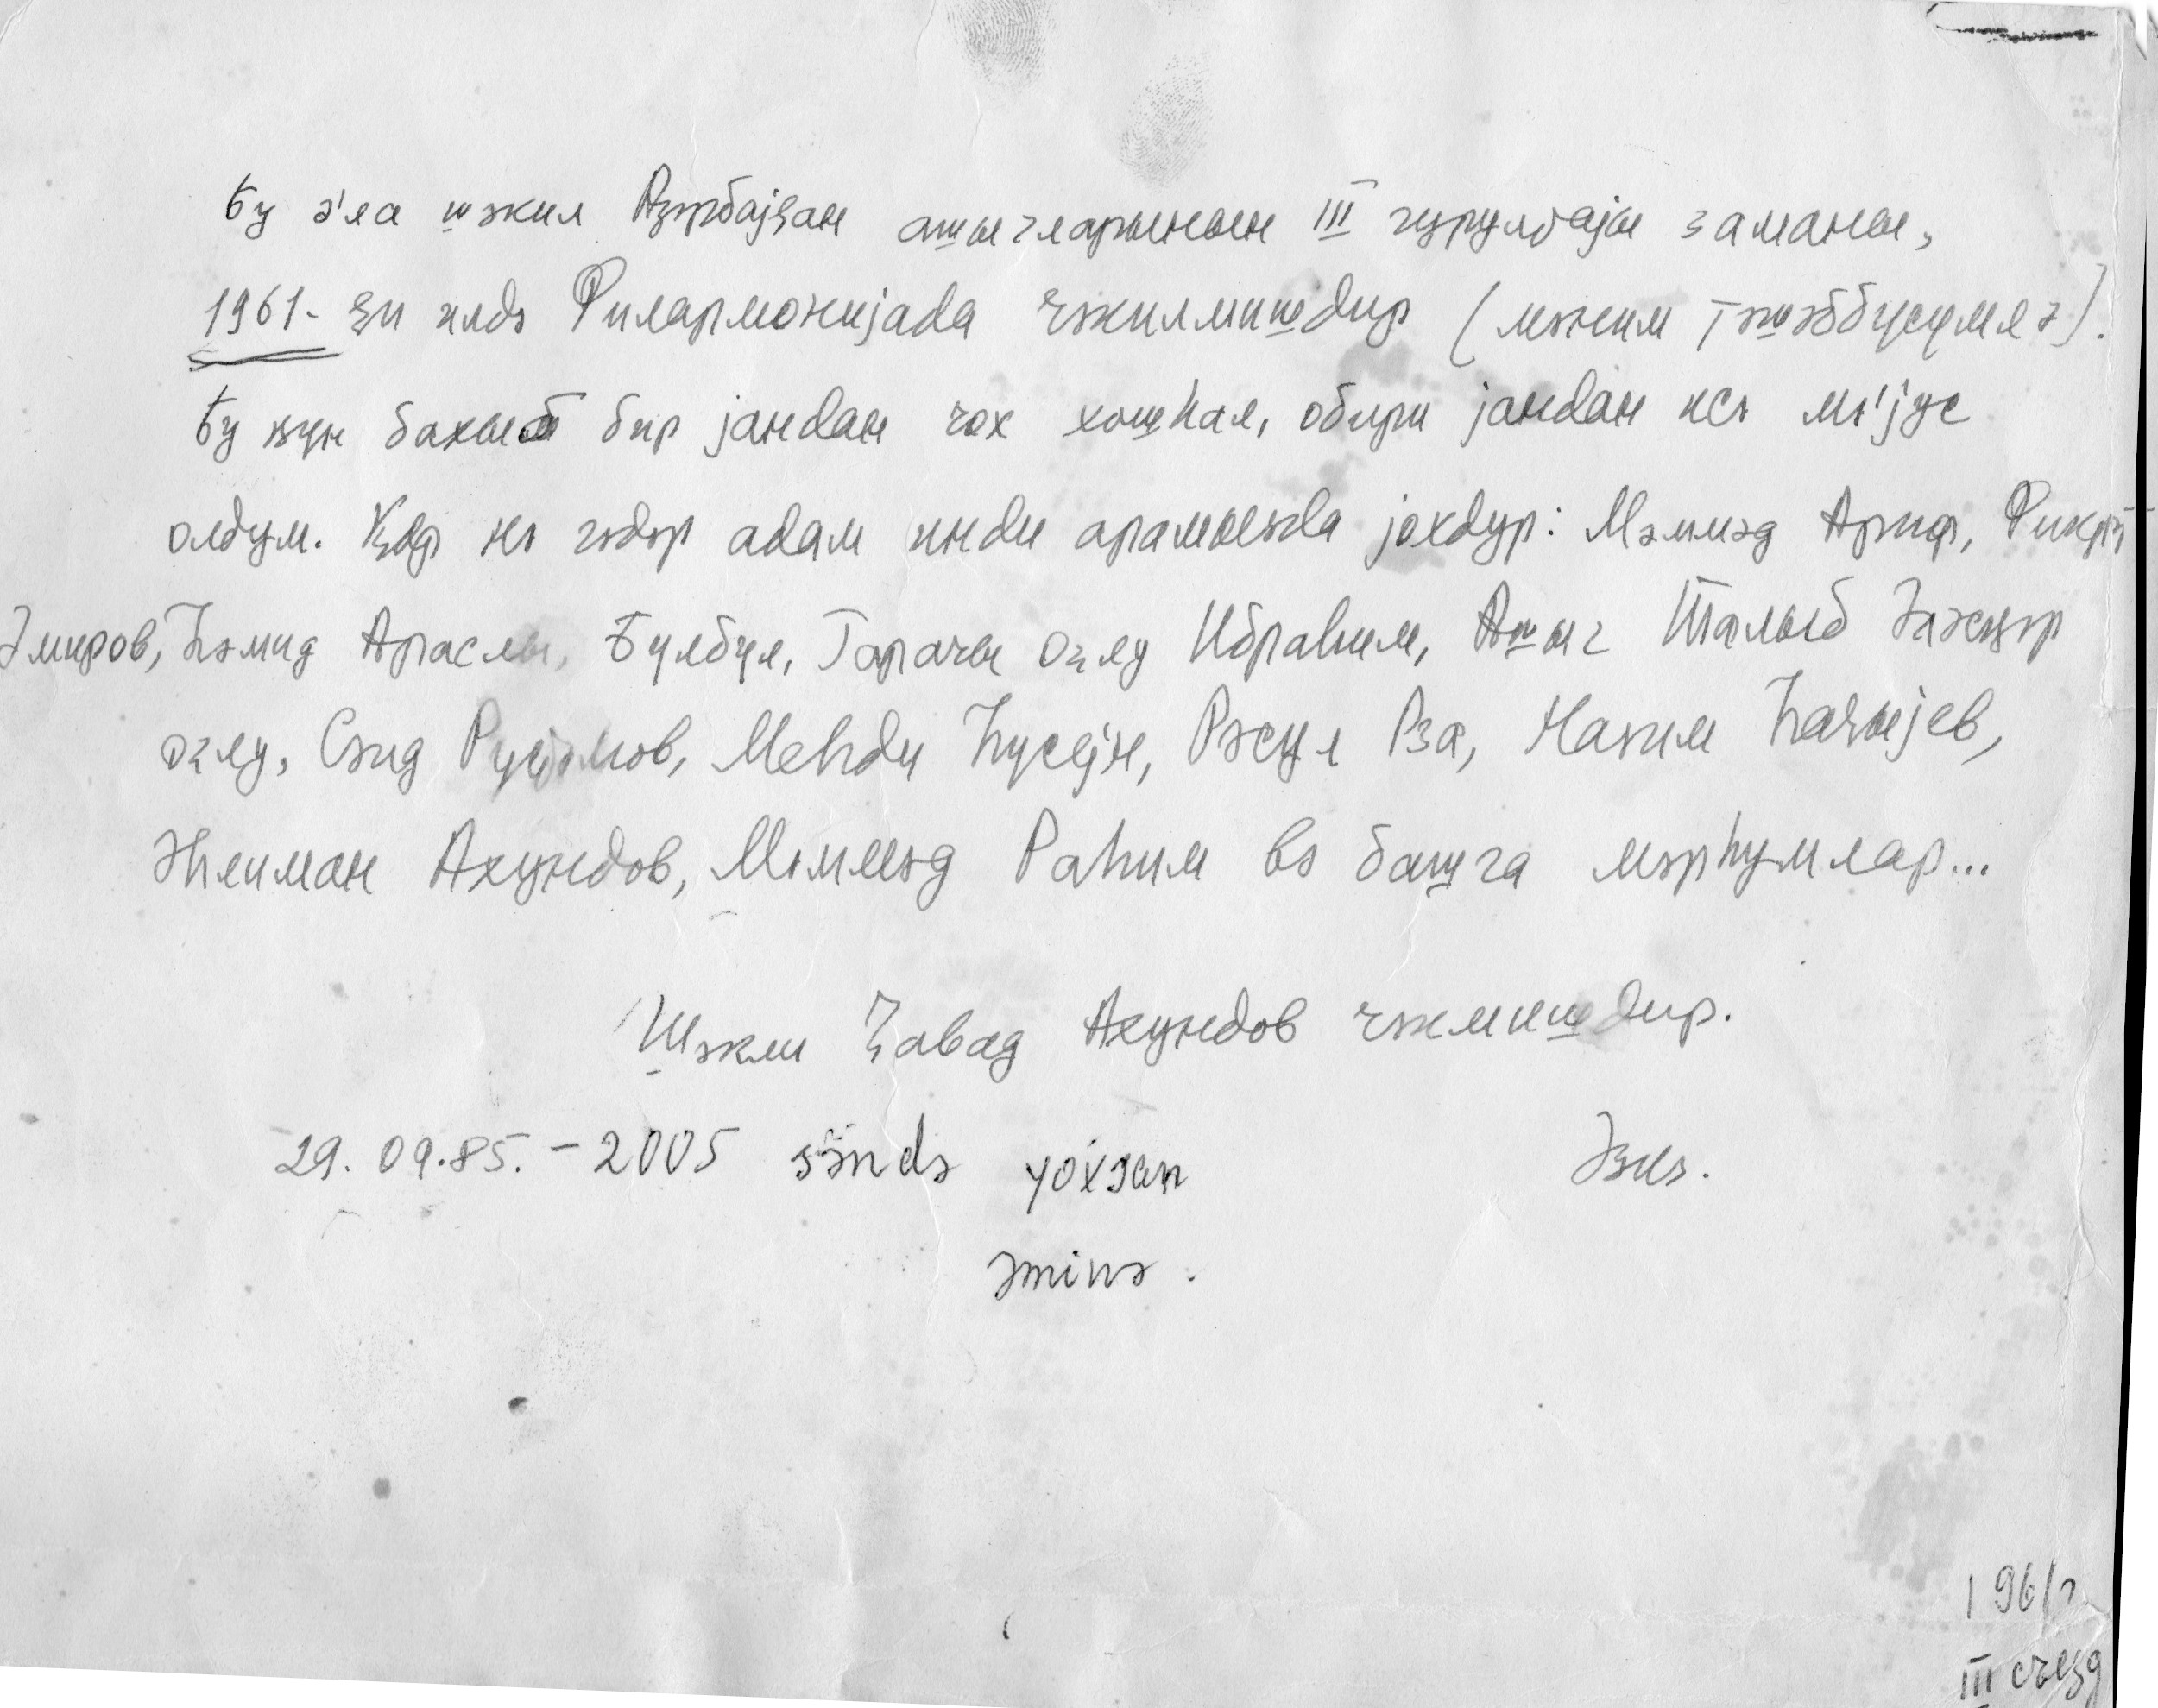 Бу ә'ла шәкил Азәрбајҹан ашыгларынын III гурултајы заманы,
1961-ҹи илдә Филармонијада чәкилмишдир (мәним тәшәббүсүмлә).
Бу ҝүн бахыб бир јандан чох хошһал, обири јандан исә мә'јус
олдум. Көр нә гәдәр адам инди арамызда јохдур: Мәммәд Ариф, Фикрәт
Әмиров, Һәмид Араслы, Бүлбүл, Гарачы оғлу Ибраһим, Ашыг Талыб Әләсҝәр
оғлу, Сәид Рүстәмов, Меһди Һүсејн, Рәсул Рза, Назим Һачыјев,
Әһлиман Ахундов, Мәммәд Раһим вә башга мәрһумлар...
Шәкли Ҹавад Ахундов чәкмишдир.
29.09.85. – 2005 yoxsan
Әминә.
əminə.
1961 г
III съезд